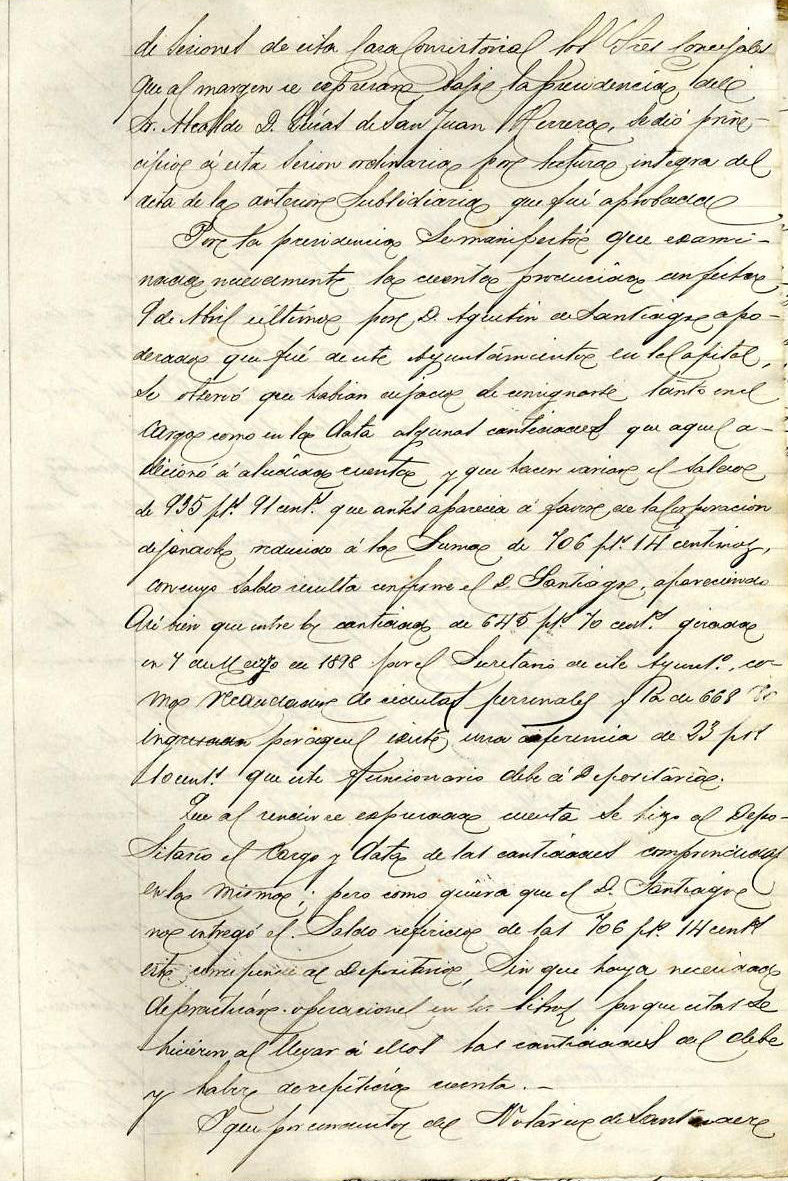 de Sesiones de esta Casa Consistorial los Sres Concejales
que al margen se espresan bajo la presidencia del
Sr. Alcalde D. Lucas de San Juan Herrera, se dió prin-
cipio á esta sesion ordinaria por lectura integra del
acta de la anterior Subsidiaria que fué aprobada
Por la presidencia se manifestó que exami-
nada nuevamente la cuenta producida con fecha
9 de Abril último por D. Agustin de Santiago apo-
derado que fué de este Ayuntamiento en la Capital,
se observó que habian dejado de consignarse tanto en el
cargo como en la data algunas cantidades que aquel a-
dicionó á aludida cuenta y que hacen variar el saldo
de 935 pts. 91 cents. que antes aparecia á favor de la Corporacion
dejandole reducido á la suma de 706 pts. 14 centimos,
con cuyo saldo resulta conforme el D. Santiago, apareciendo
asi bien que entre la cantidad de 645 pts. 70 cents. girada
en 7 de Marzo de 1898 por el Secretario de este Ayunto. co-
mo recaudador de cedulas personales y la de 668
ingresada por aquel existe una diferencia de 23 pts
10 cents. que este funcionario debe á Depositaria.
Que al rendirse espresada cuenta se hizo al Depo-
sitario el cargo y data de las cantidades comprendidas
en la misma; pero como quiera que el D. Santiago
no entregó el saldo referido de las 706 pts. 14 cents
este corresponde al Depositario, sin que haya necesidad
de practicar operaciones en los libros porque estas se
hicieron al llevar á ellos las cantidades del debe
y haber de repetida cuenta. -
Y que por conducto del Notario de Santander